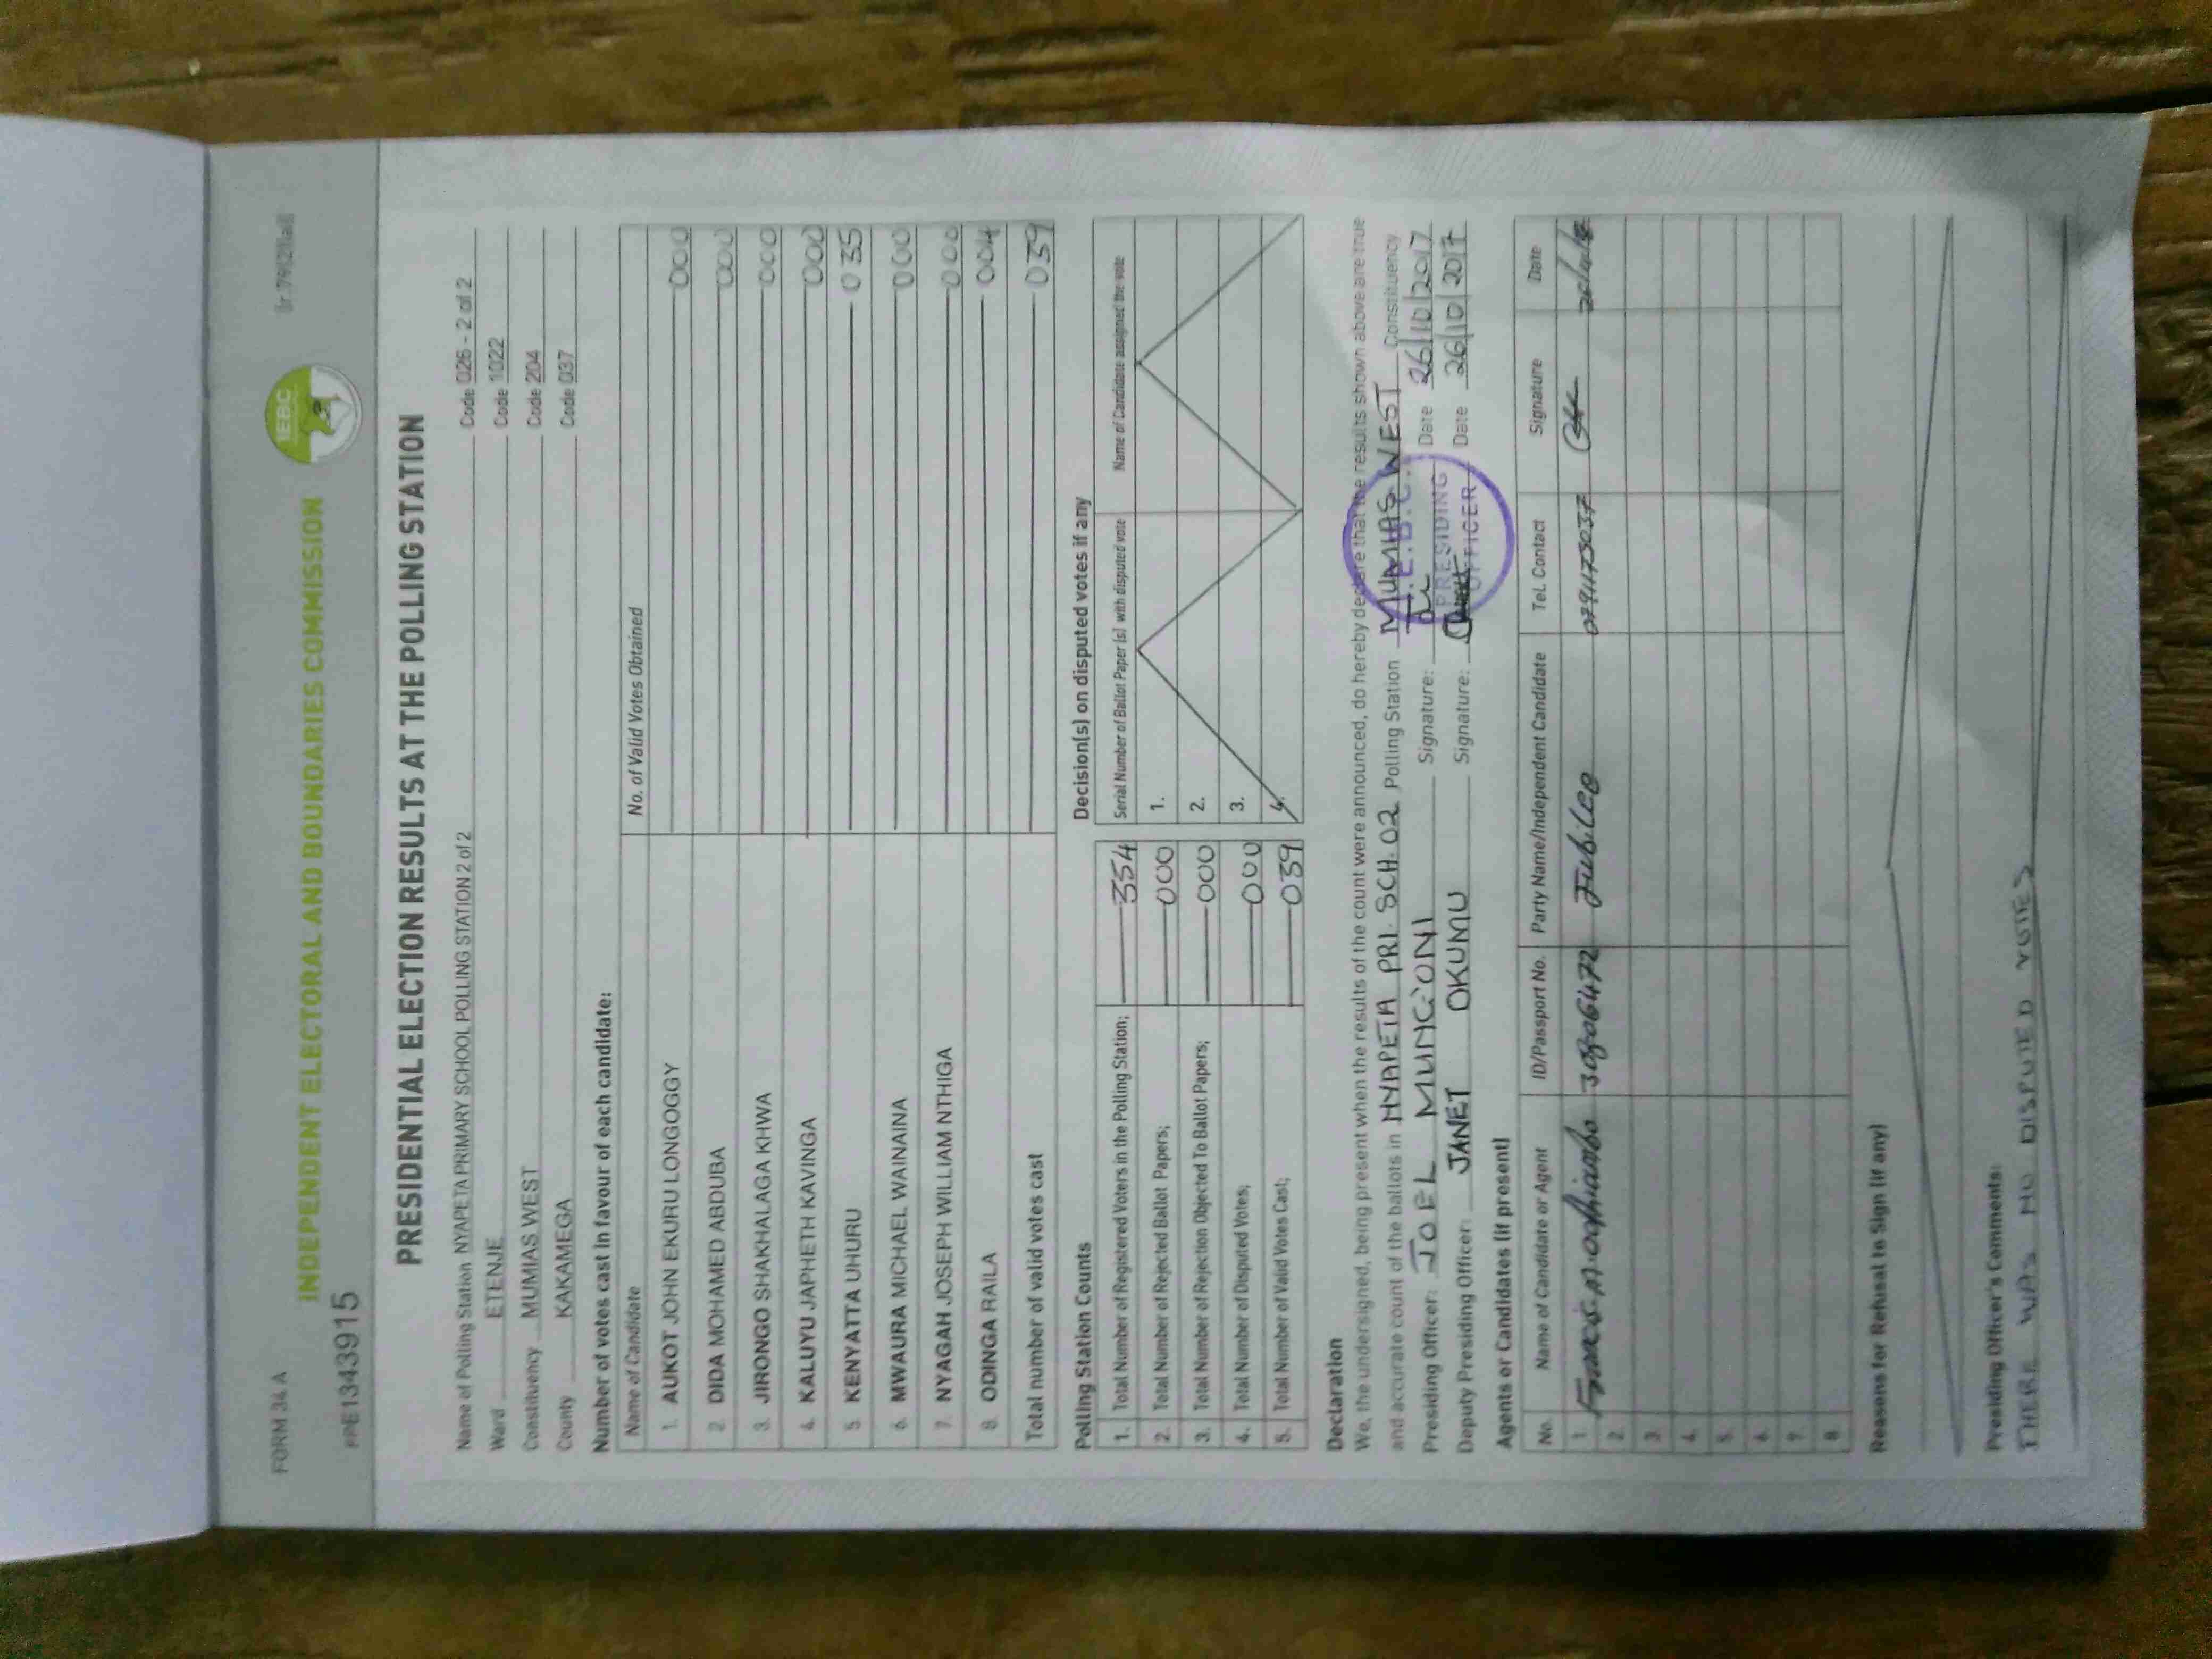 FORM 34 A
INDEPENDENT ELECTORAL AND BOUNDARIES COMMISSION
IEBC
PPE1343915
PRESIDENTIAL ELECTION RESULTS AT THE POLLING STATION
Name of Polling Station NYAPETA PRIMARY SCHOOL POLLING STATION 2 of 2 Code 026 - 2 of 2
Ward ETENJE Code 1022
Constituency MUMIAS WEST Code 204
County KAKAMEGA Code 037
Number of votes cast in favour of each candidate:
Name of Candidate No. of Valid Votes Obtained
1. AUKOT JOHN EKURU LONGOGGY 000
2. DIDA MOHAMED ABDUBA 000
3. JIRONGO SHAKHALAGA KHWA 000
4. KALUYU JAPHETH KAVINGA 000
5 KENYATTA UHURU 035
6. MWAURA MICHAEL WAINAINA 000
7. NYAGAH JOSEPH WILLIAM NTHIGA 000
8. ODINGA RAILA 004
Total number of valid votes cast 039
Polling Station Counts
1. Total Number of Registered Voters in the Polling Station; 354
2. Total Number of Rejected Ballot Papers; 000
3. Total Number of Rejection Objected To Ballot Papers; 000
4. Total Number of Disputed Votes; 000
5. Total Number of Valid Votes Cast; 039
Decision(s) on disputed votes if any
Serial Number of Ballot Paper (s) with disputed vote Name of Candidate assigned the vote
1.
2.
3.
4.
Declaration
We, the undersigned, being present when the results of the count were announced, do hereby declare that the results shown above are true
and accurate count of the ballots in NYAPETA PRI. SCH. 02 Polling Station MUMIAS WEST Constituency
Presiding Officer: JOEL MUNG'ONI Signature: Date 26/10/2017
Deputy Presiding Officer: JANET OKUMU Signature: Date 26/10/2017
I.E.B.C.
PRESIDING
OFFICER
Agents or Candidates (if present)
No. Name of Candidate or Agent ID/Passport No. Party Name/Independent Candidate Tel. Contact Signature Date
1. 30806472 Jubilee
2.
3.
4.
5.
6.
7.
8.
Reasons for Refusal to Sign (if any)
Presiding Officer's Comments:
THERE WAS NO DISPUTED VOTES